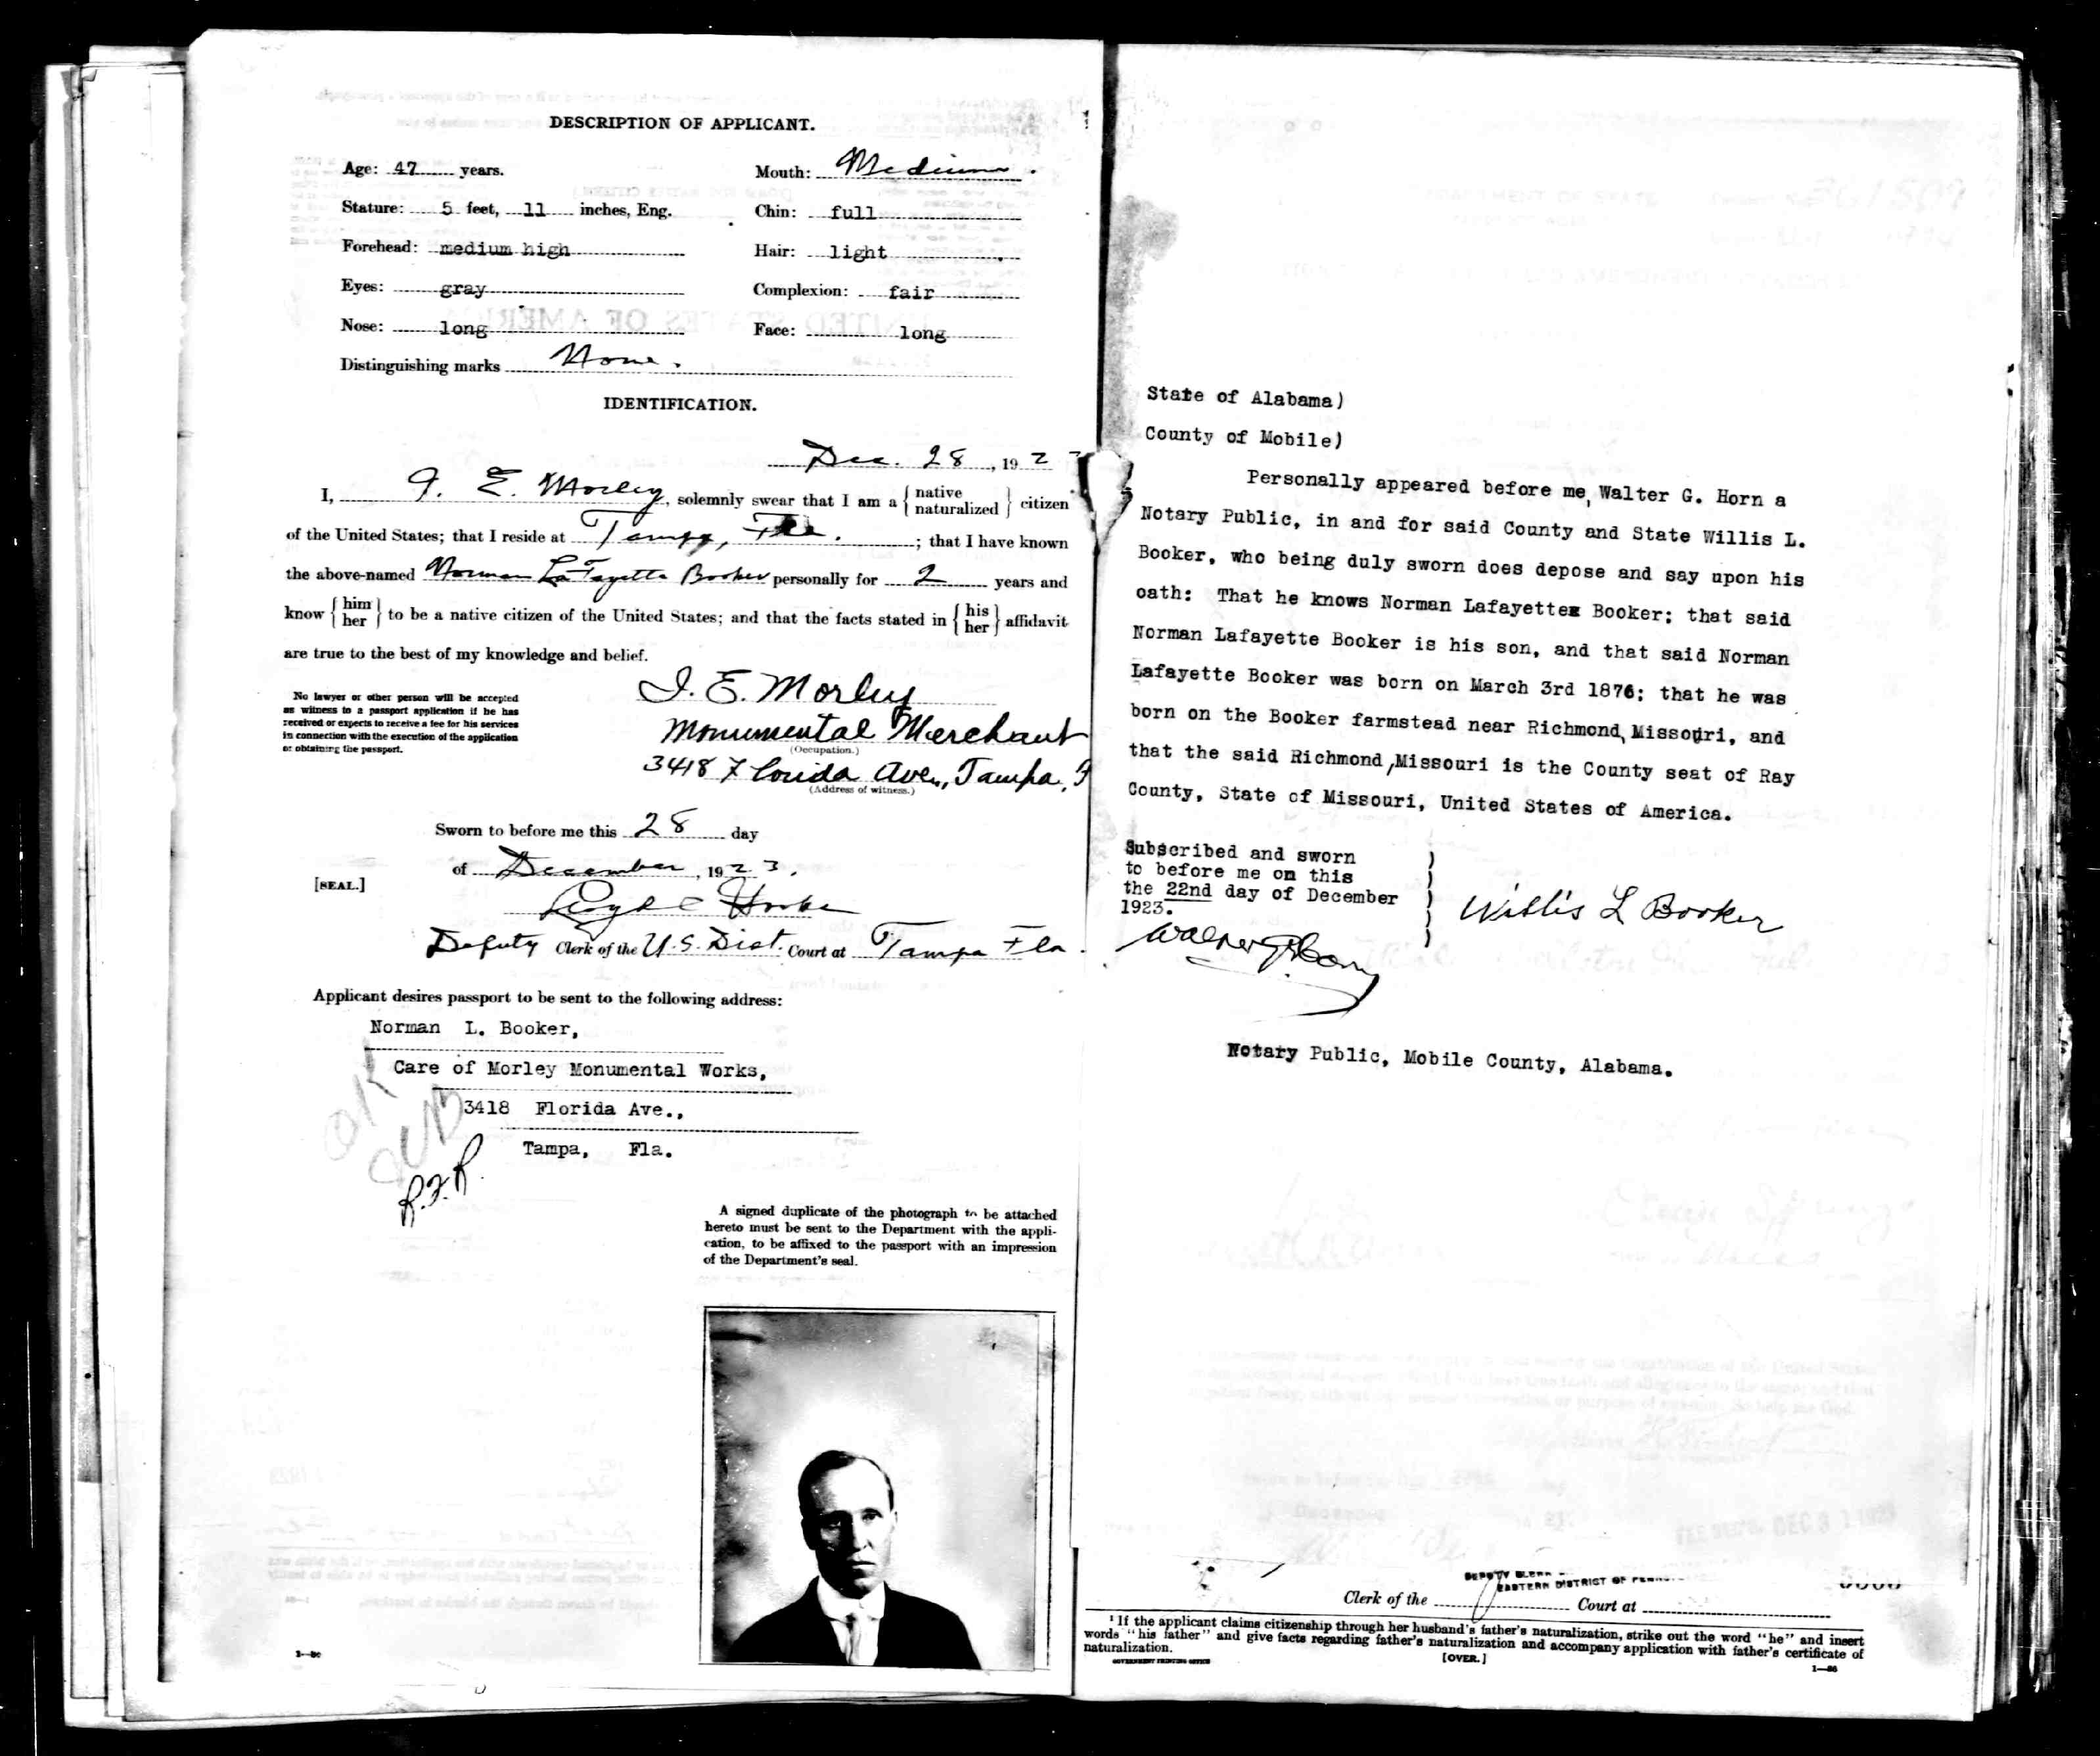 DESCRIPTION OF APPLICANT.
Age: 47 years.
Mouth: Medium.
Stature: 5 feet, 11 inches, Eng.
Chin: full
Forehead: medium high
Hair: light
Eyes: gray
Complexion: fair
Nose: long
Face: long
Distinguishing marks None.
IDENTIFICATION.
Dec. 28, 192
I, I. E. Morley, solemnly swear that I am a { native naturalized } citizen
of the United States; that I reside at Tampa, Fla.; that I have known
the above-named Norman LaFayette Booker personally for 2 years and
know { him her } to be a native citizen of the United States; and that the facts stated in { his her } affidavit
are true to the best of my knowledge and belief.
No lawyer or other person will be accepted
as witness to a passport application if he has
received or expects to receive a fee for his services
in connection with the execution of the application
or obtaining the passport.
I. E. Morley
Monumental Merchant
(Occupation.)
3418 Florida Ave., Tampa, F
(Address of witness.)
Sworn to before me this 28 day
of December, 1923.
[SEAL.]
Deputy Clerk of the U.S. Dist. Court at Tampa Fla.
Applicant desires passport to be sent to the following address:
Norman L. Booker,
Care of Morley Monumental Works,
3418 Florida Ave.,
Tampa, Fla.
OK
R.F.R.
A signed duplicate of the photograph to be attached
hereto must be sent to the Department with the appli-
cation, to be affixed to the passport with an impression
of the Department's seal.
State of Alabama)
County of Mobile)
Personally appeared before me, Walter G. Horn a
Notary Public, in and for said County and State Willis L.
Booker, who being duly sworn does depose and say upon his
oath: That he knows Norman Lafayette Booker; that said
Norman Lafayette Booker is his son, and that said Norman
Lafayette Booker was born on March 3rd 1876; that he was
born on the Booker farmstead near Richmond, Missouri, and
that the said Richmond, Missouri is the County seat of Ray
County, State of Missouri, United States of America.
Subscribed and sworn )
to before me on this )
the 22nd day of December )
1923. )
Willis L Booker
Walter G. Horn
Notary Public, Mobile County, Alabama.
DEPUTY CLERK
EASTERN DISTRICT OF
Clerk of the Court at
¹ If the applicant claims citizenship through her husband's father's naturalization, strike out the word "he" and insert
words "his father" and give facts regarding father's naturalization and accompany application with father's certificate of
naturalization.
GOVERNMENT PRINTING OFFICE
[OVER.]